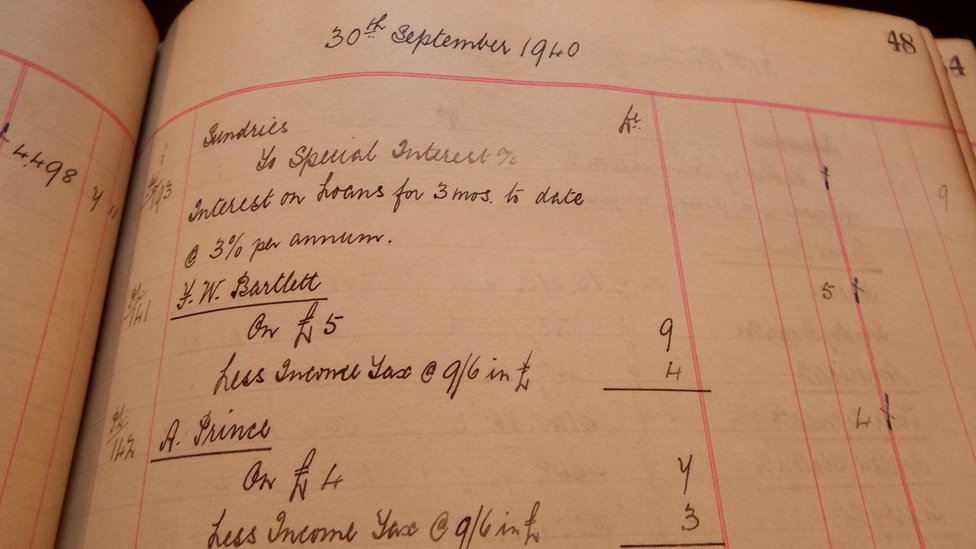 30th September 1940 48
4
4498
Sundries Dr.
To Special Interest %
93
Interest on Loans for 3 mos. to date
@ 3% per annum.
141 F. W. Bartlett 5
On £5 9
Less Income Tax @ 9/6 in £ 4
142 A. Prince 4
On £4 7
Less Income Tax @ 9/6 in £ 3